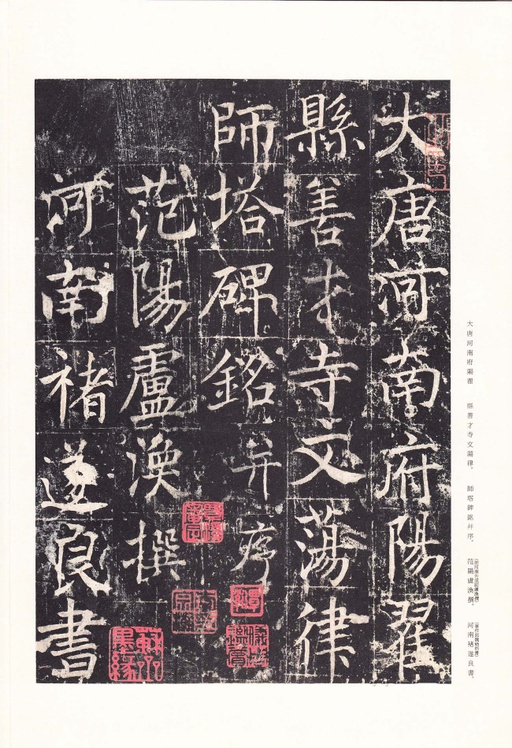 大唐河南府陽翟
縣善才寺文蕩律
師塔碑銘并序
范陽盧渙撰
河南褚遂良書
大唐河南府陽翟 縣善才寺文蕩律、 師塔碑銘并序、 范陽盧渙撰、 河南褚遂良書、